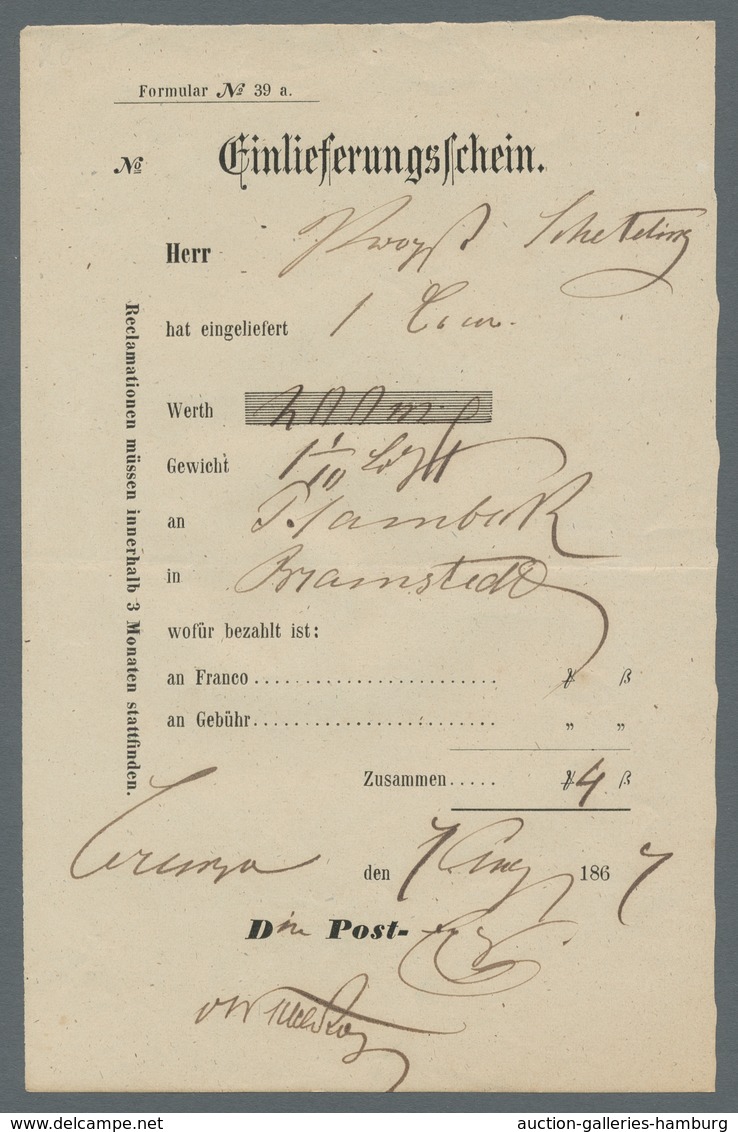 Formular № 39 a.
№ Einlieferungsschein.
Herr Propst Schetelig
hat eingeliefert 1 Couv.
Werth 200
Gewicht 1 1/10 Loth
an
in Bramstedt
wofür bezahlt ist:
an Franco........................ ß
an Gebühr........................ „ „
Zusammen..... 4 ß
den 7 Aug 1867
Die Post-
Reclamationen müssen innerhalb 3 Monaten stattfinden.
www.delcampe.net
auction-galleries-hamburg